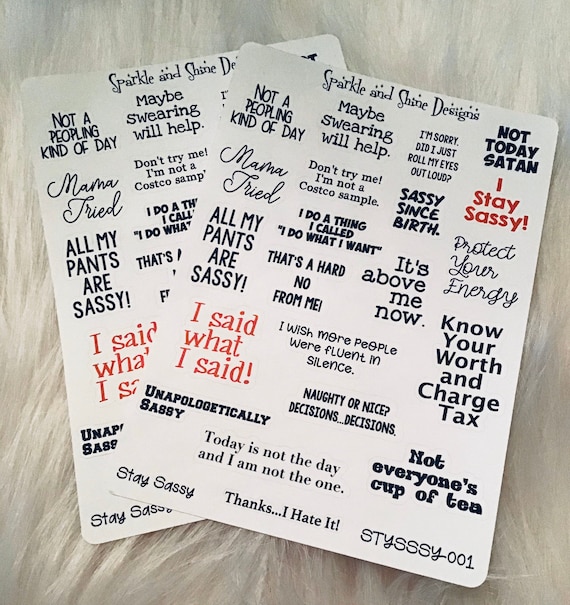 Sparkle and Shine Des
NOT A
PEOPLING
KIND OF DAY
Maybe
swearing
will help.
Mama
Tried
Don't try me!
I'm not a
Costco samp
ALL MY
PANTS
ARE
SASSY!
I DO A THING
I CALLED
"I DO WHAT
THAT'S A
I said
what
I sa
UNAP
SASS
Stay Sass
Sparkle and Shine Designs
NOT A
PEOPLING
KIND OF DAY
Maybe
swearing
will help.
I'M SORRY.
DID I JUST
ROLL MY EYES
OUT LOUD?
NOT
TODAY
SATAN
Mama
Tried
Don't try me!
I'm not a
Costco sample.
SASSY
SINCE
BIRTH.
I
Stay
Sassy!
ALL MY
PANTS
ARE
SASSY!
I DO A THING
I CALLED
"I DO WHAT I WANT"
THAT'S A HARD
NO
FROM ME!
It's
above
me
now.
Protect
Your
Energy
I said
what
I said!
I wish more people
were fluent in
silence.
Know
Your
Worth
and
Charge
Tax
UNAPOLOGETICALLY
SASSY
NAUGHTY OR NICE?
DECISIONS...DECISIONS.
Today is not the day
and I am not the one.
Not
everyone's
cup of tea
Stay Sassy
Thanks...I Hate It!
STYSSSY-001